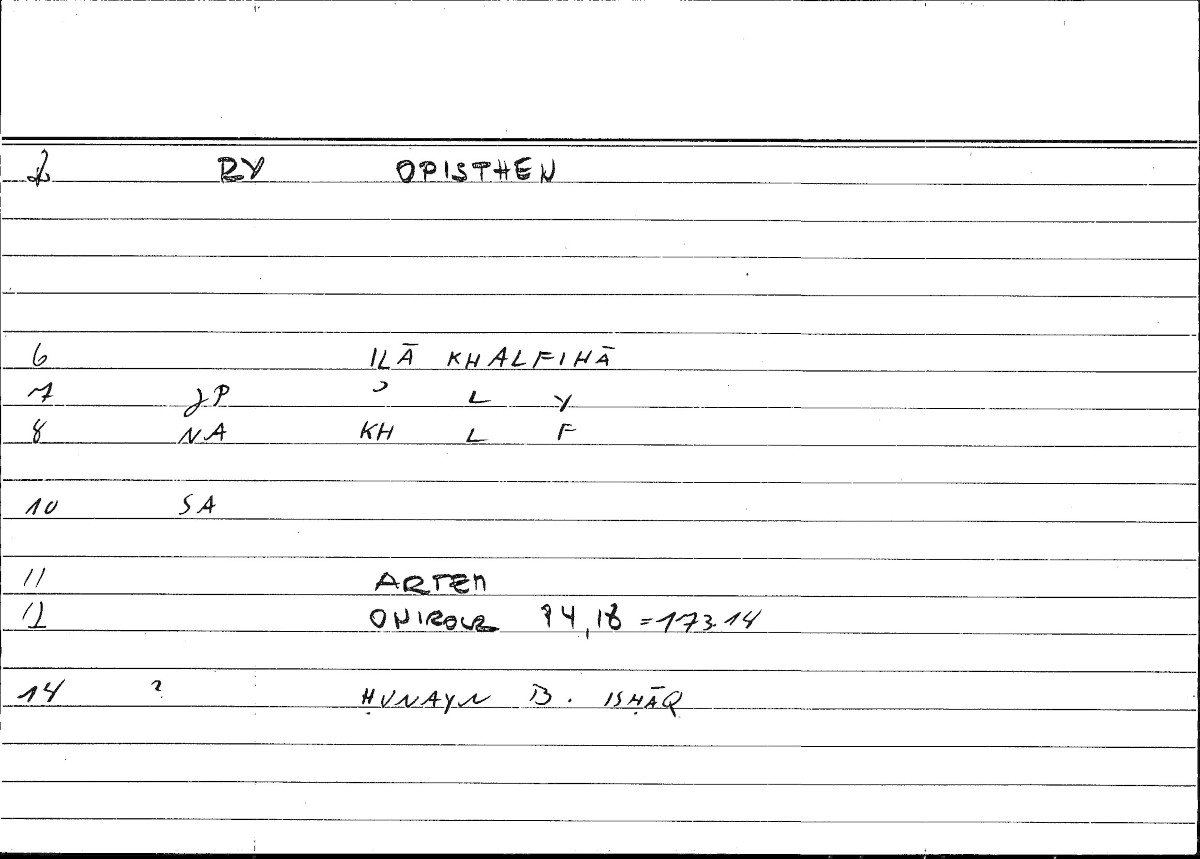 RY OPISTHEN
6 ILĀ KHALFIHĀ
7 JP ʾ L Y
8 NA KH L F
10 SA
11 ARTEM
12 ONIROCR 94,18 = 173.14
14 ? ḤUNAYN B. ISḤĀQ